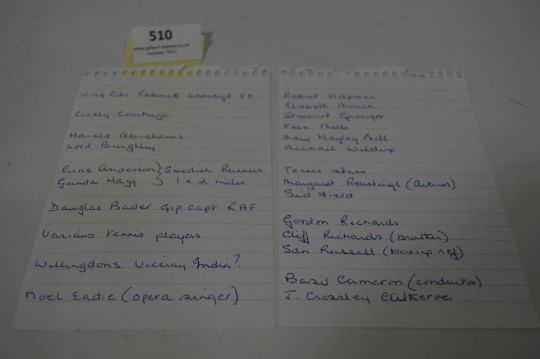 510
Wing Cdr Roderick Learoyd VC
Cicely Courtneidge
Harold Abrahams
Lord Burghley
Arne Anderson } Swedish Runners
Gunda Hagg } 1 & 2 miles
Douglas Bader Grp capt RAF
Various tennis players
Willingdons Viceroy India?
Noel Eadie (opera singer)
Robert Helpman
Elsbeth March
Stewart Granger
Jean Mills
Mary Hayley Bell
Michael Wilding
Tennis stars
Margaret Rawlings (Actress)
Sid Field
Gordon Richards
Cliff Richards (brother)
Sam Russell (boxing ref)
Basil Cameron (conductor)
J. Crossley Clitheroe